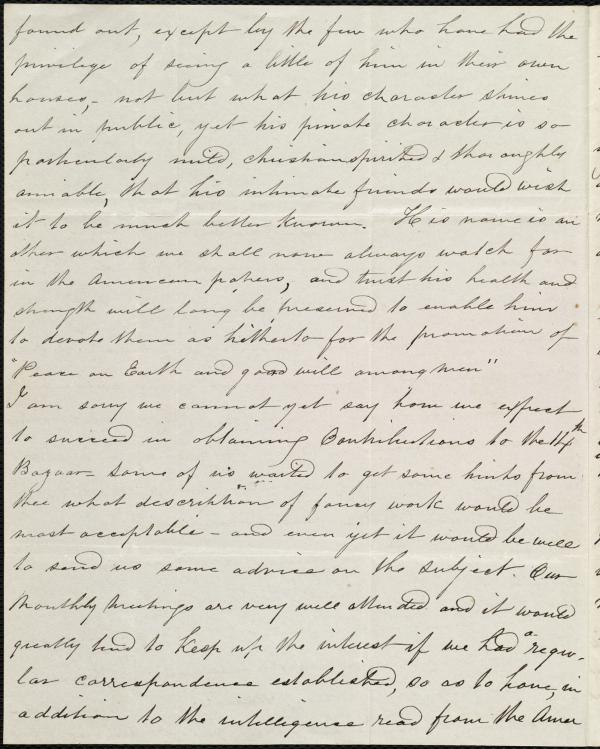 found out, except by the few who have had the
privilege of seeing a little of him in their own
houses, - not but what his character shines
out in public, yet his private character is so
particularly mild, christian spirited & thoroughly
amiable, that his intimate friends would wish
it to be much better known. His name is an
other which we shall now always watch for
in the American papers, and trust his health and
strength will long be preserved to enable him
to devote them as hitherto for the promotion of
"Peace on Earth and good will among men"
I am sorry we cannot yet say how we expect
to succeed in obtaining Contributions to the
Bazaar - some of us wanted to get some hints from
thee what description of fancy work would be
most acceptable - and even yet it would be well
to send us some advice on the subject. Our
Monthly Meetings are very well attended and it would
greatly tend to keep up the interest if we had a regu-
lar correspondence established, so as to have, in
addition to the intelligence read from the Amer